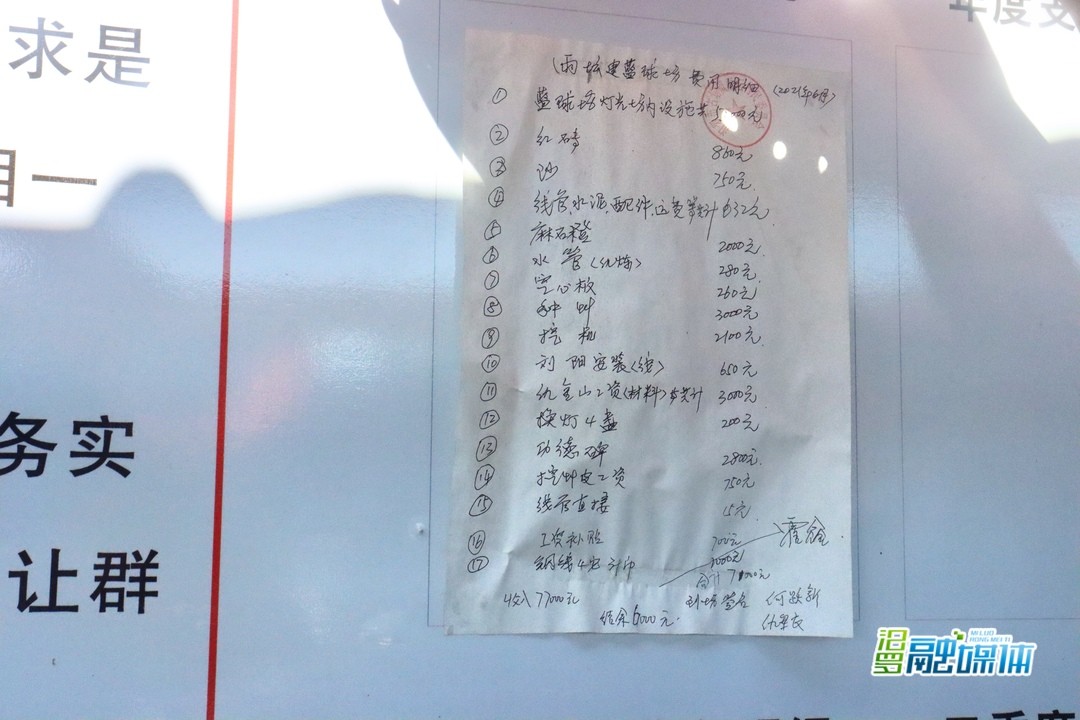 求是
年度支
一
务实
让群
建篮球场费用明细 (2021年6月)
① 篮球场灯光场内设施共
② 红砖 860元
③ 沙 750元
④ 线管,水泥,配件,运费等共计 632元
⑤ 麻石凳 2000元
⑥ 水管 280元
⑦ 空心板 260元
⑧ 种草 3000元
⑨ 挖机 2100元
⑩ 刘阳安装 650元
⑪ 仇金山工资(材料)共计 3000元
⑫ 换灯4盏 200元
⑬ 功德碑 2800元
⑭ 挖草皮工资 750元
⑮ 线管直接 15元
⑯ 工资补贴 700元
⑰ 1000元
合计71000元
收入77000元
结余6000元
汨罗融媒体
MI LUO RONG MEI TI